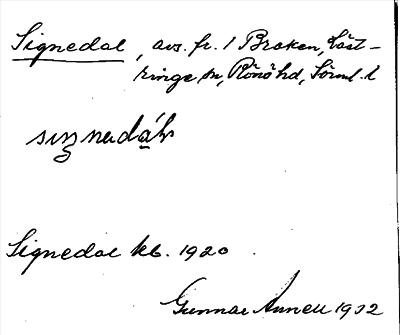 Signedal, avs. fr. 1 Braken, Väst-
ringe sn, Rönö hd, Sörml. l
Signedal kb. 1920
Gunnar Annell 1932